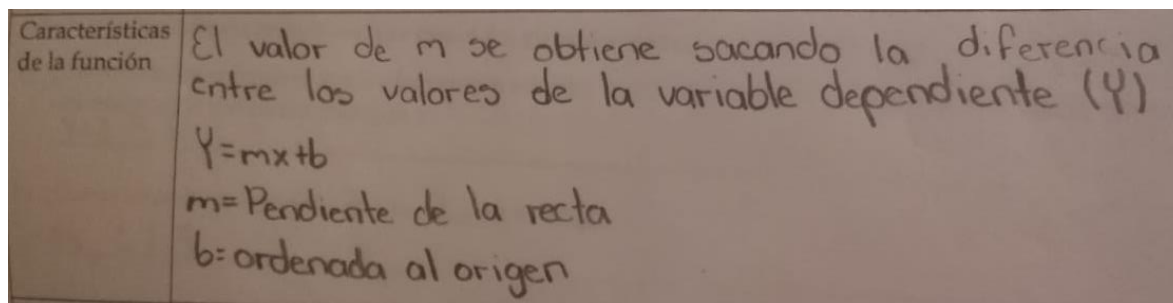 Características
de la función
El valor de m se obtiene sacando la diferencia
entre los valores de la variable dependiente (Y)
Y=mx+b
m=Pendiente de la recta
b=ordenada al origen